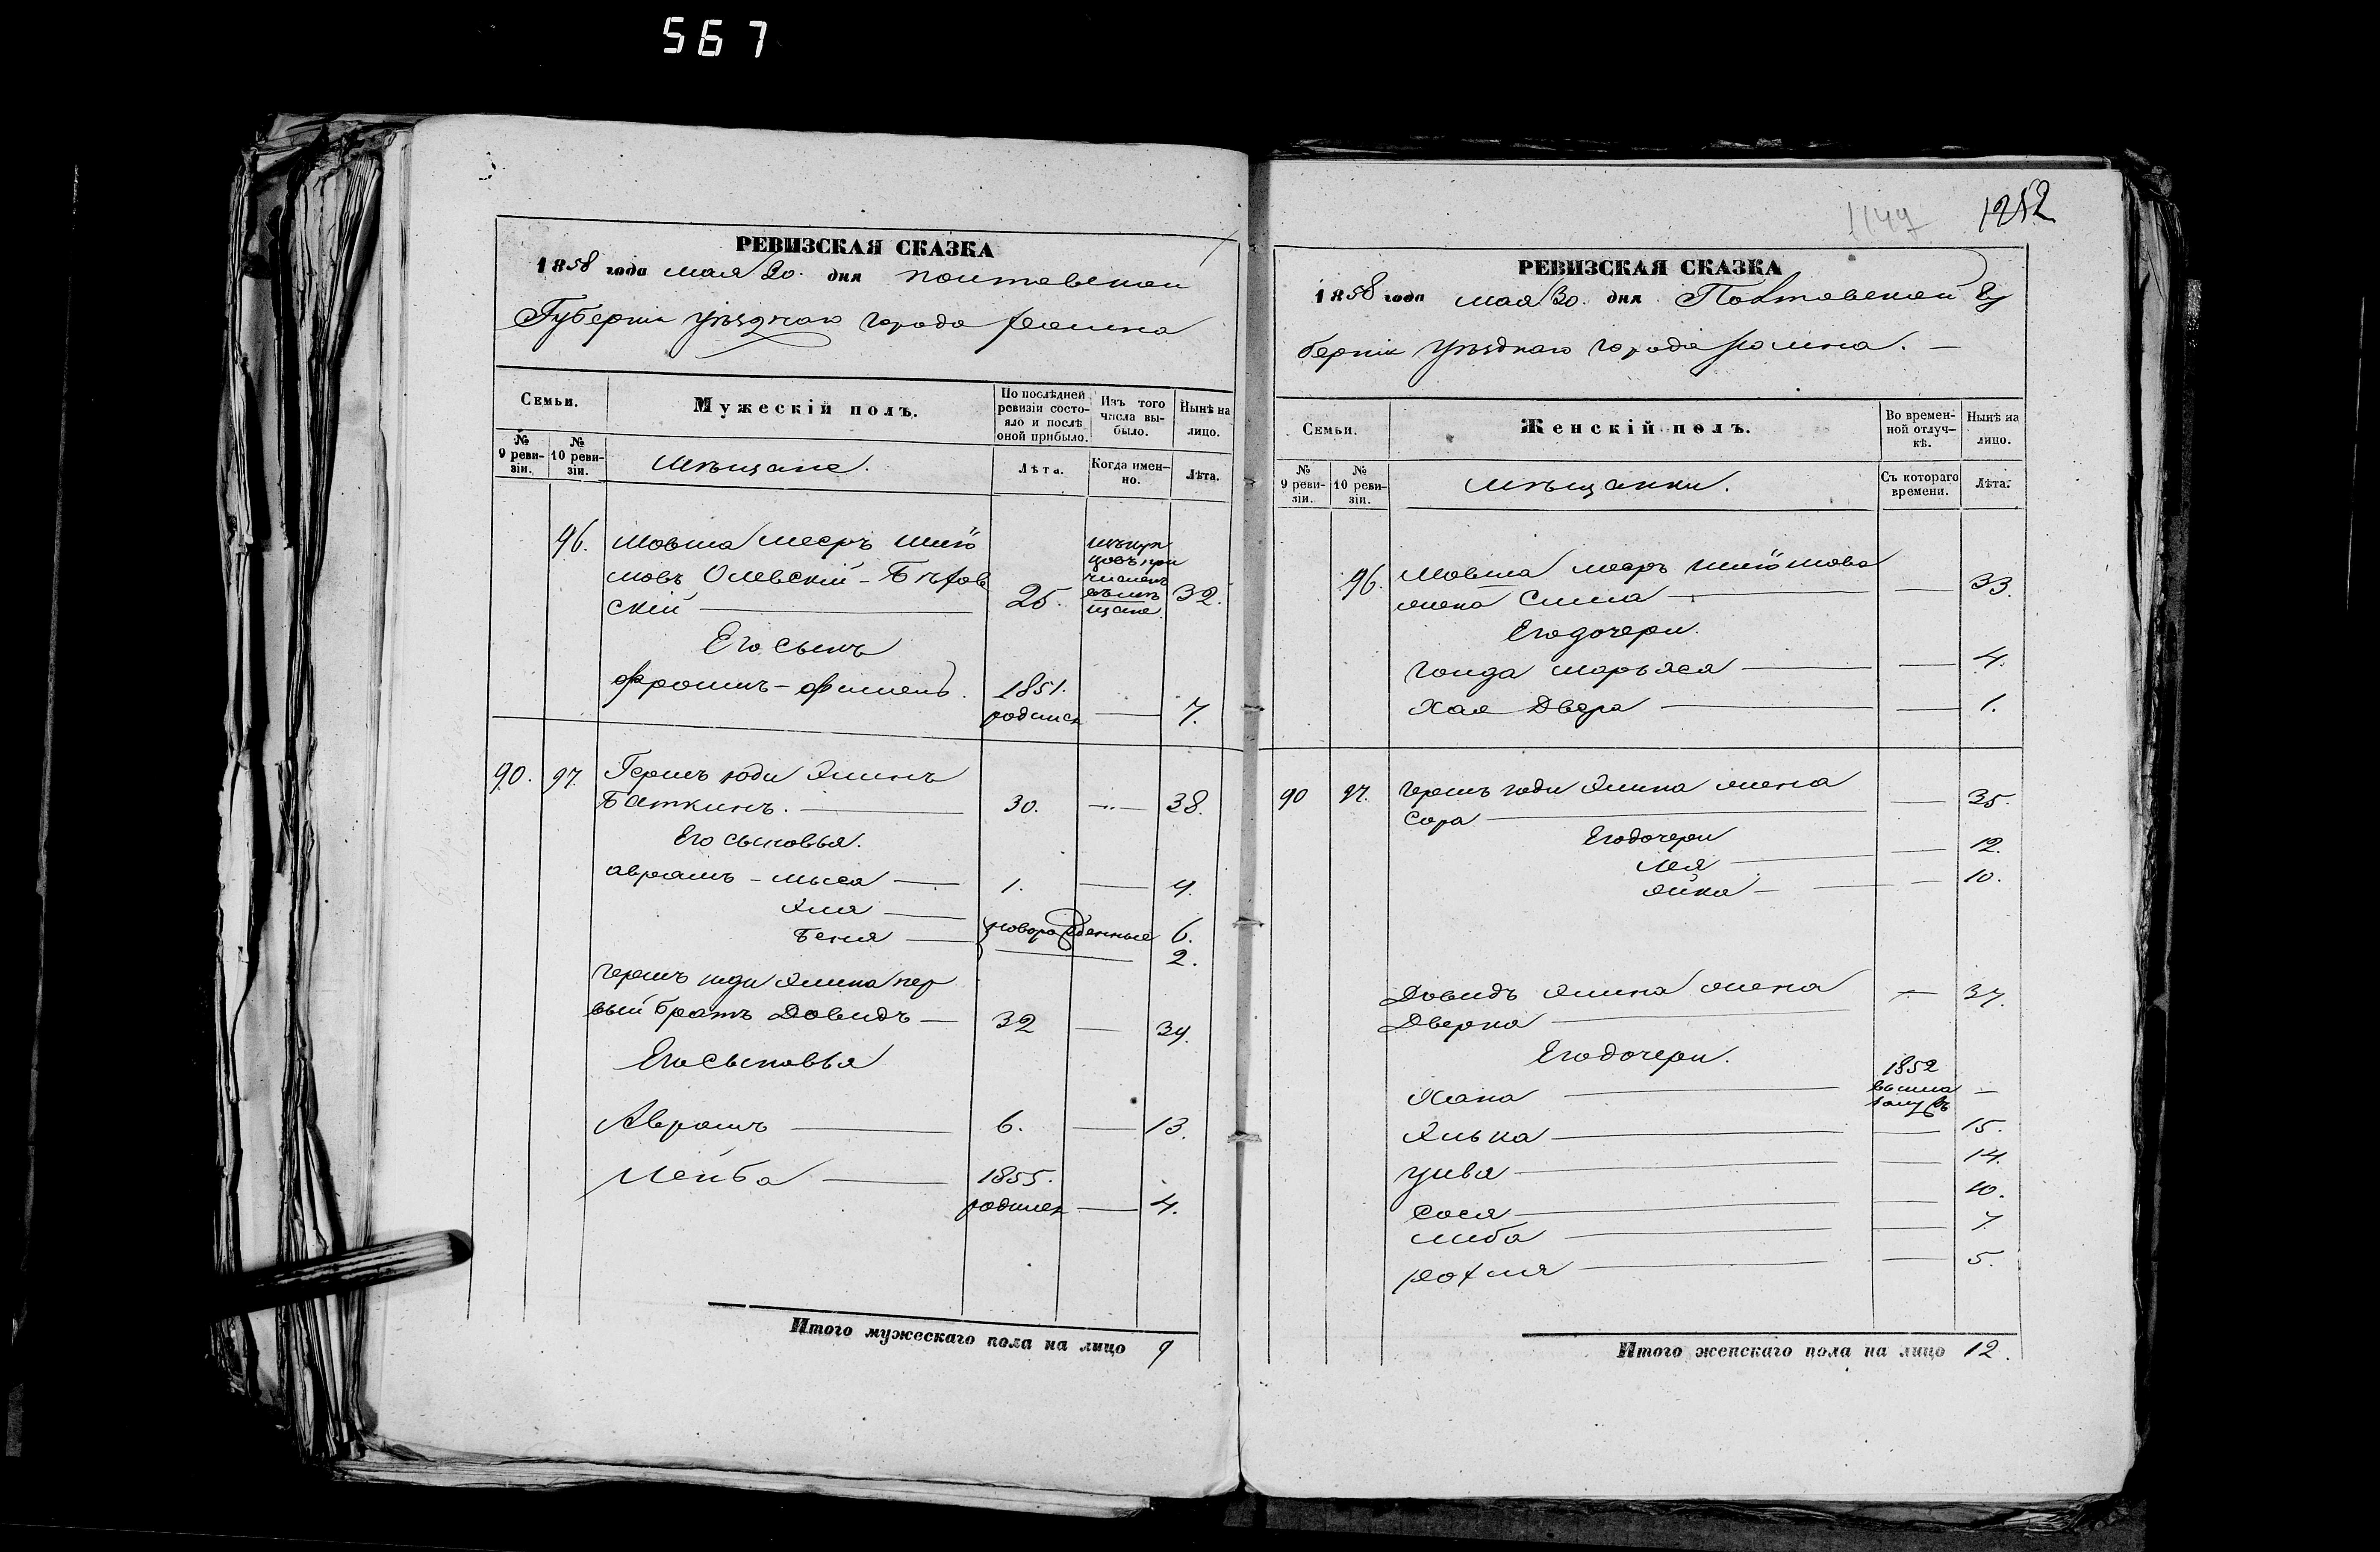 567
РЕВИЗСКАЯ СКАЗКА
1858 года мая 20. дня Полтавской
Губерніи уѣзднаго города Ромна
Семьи.
Мужескій полъ.
По послѣдней ревизіи состояло и послѣ оной прибыло.
Изъ того числа выбыло.
Нынѣ на лицо.
№ 9 ревизіи.
№ 10 ревизіи.
Мѣщане.
Лѣта.
Когда именно.
Лѣта.
96. Мовша Мееръ
мовъ Олевскій-
скій 25. 32.
Его сынъ
Фроимъ-Фишель. 1851. родился 7.
90. 97. Гершъ юди Яминъ
Баткинъ. 30. 38.
Его сыновья.
Абрамъ - Мыся 1. 9.
новорожденные 6.
Беня 2.
Гершъ юди Ямина пер
вый братъ Довидъ 32 39.
Его сыновья
Абрамъ 6. 13.
Лейба 1855. родился 4.
Итого мужескаго пола на лицо 9
1147
1252
РЕВИЗСКАЯ СКАЗКА
1858 года мая 30. дня Полтавской Гу
берніи уѣзднаго города Ромна.
Семьи.
Женскій полъ.
Во временной отлучкѣ.
Нынѣ на лицо.
№ 9 ревизіи.
№ 10 ревизіи.
Мѣщанки.
Съ котораго времени.
Лѣта.
96. Мовша Мееръ
жена Сима 33.
Его дочери.
Марьяся 4.
Хая Двера 1.
90 97. Гершъ юди Ямина жена
Сора 35.
Его дочери
Лея 12.
10.
Довидъ Ямина жена
Дверка 37.
Его дочери.
Хана 1852 вышла замужъ
15.
Цивя 14.
Сося 10.
Либа 7.
Рохля 5.
Итого женскаго пола на лицо 12.